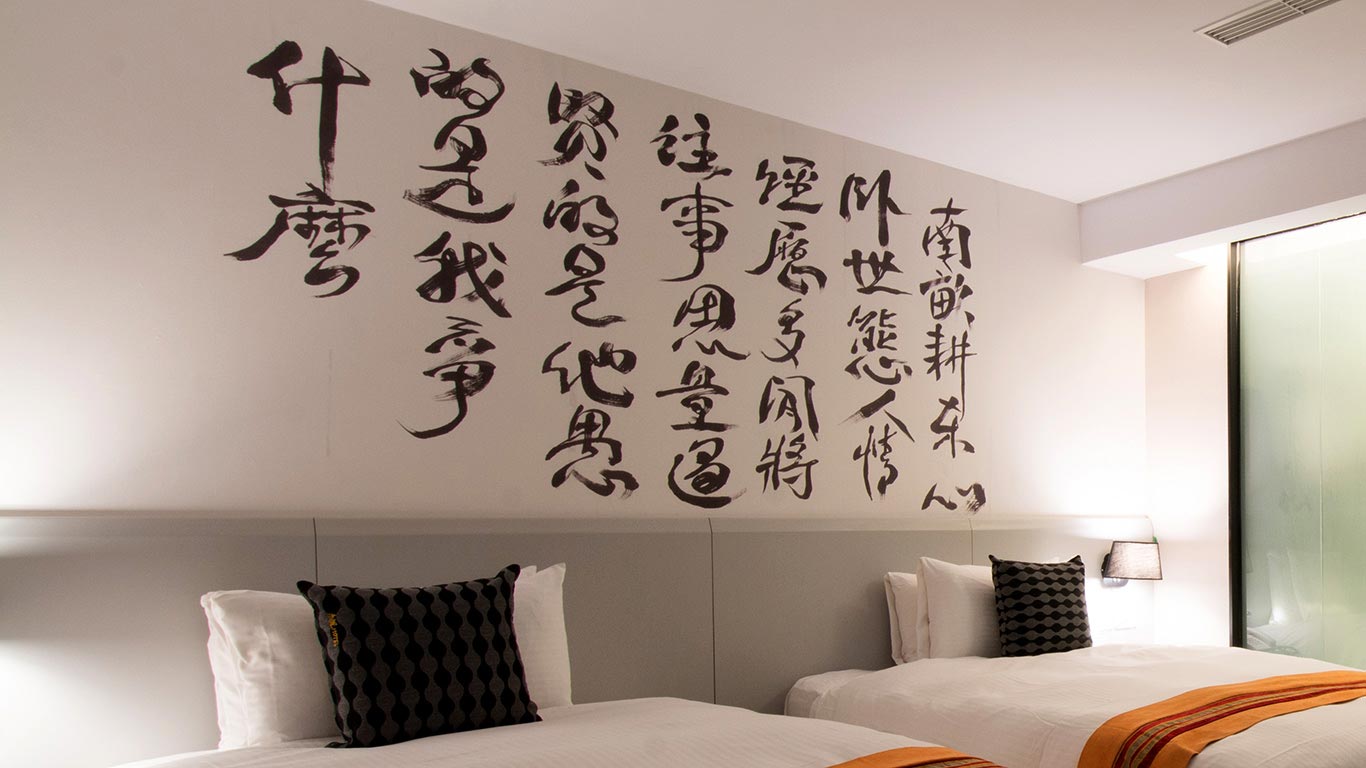 南畝耕東山
卧世態人情
經歷多閒將
往事思量過
賢的是他愚
的是我爭
什麼